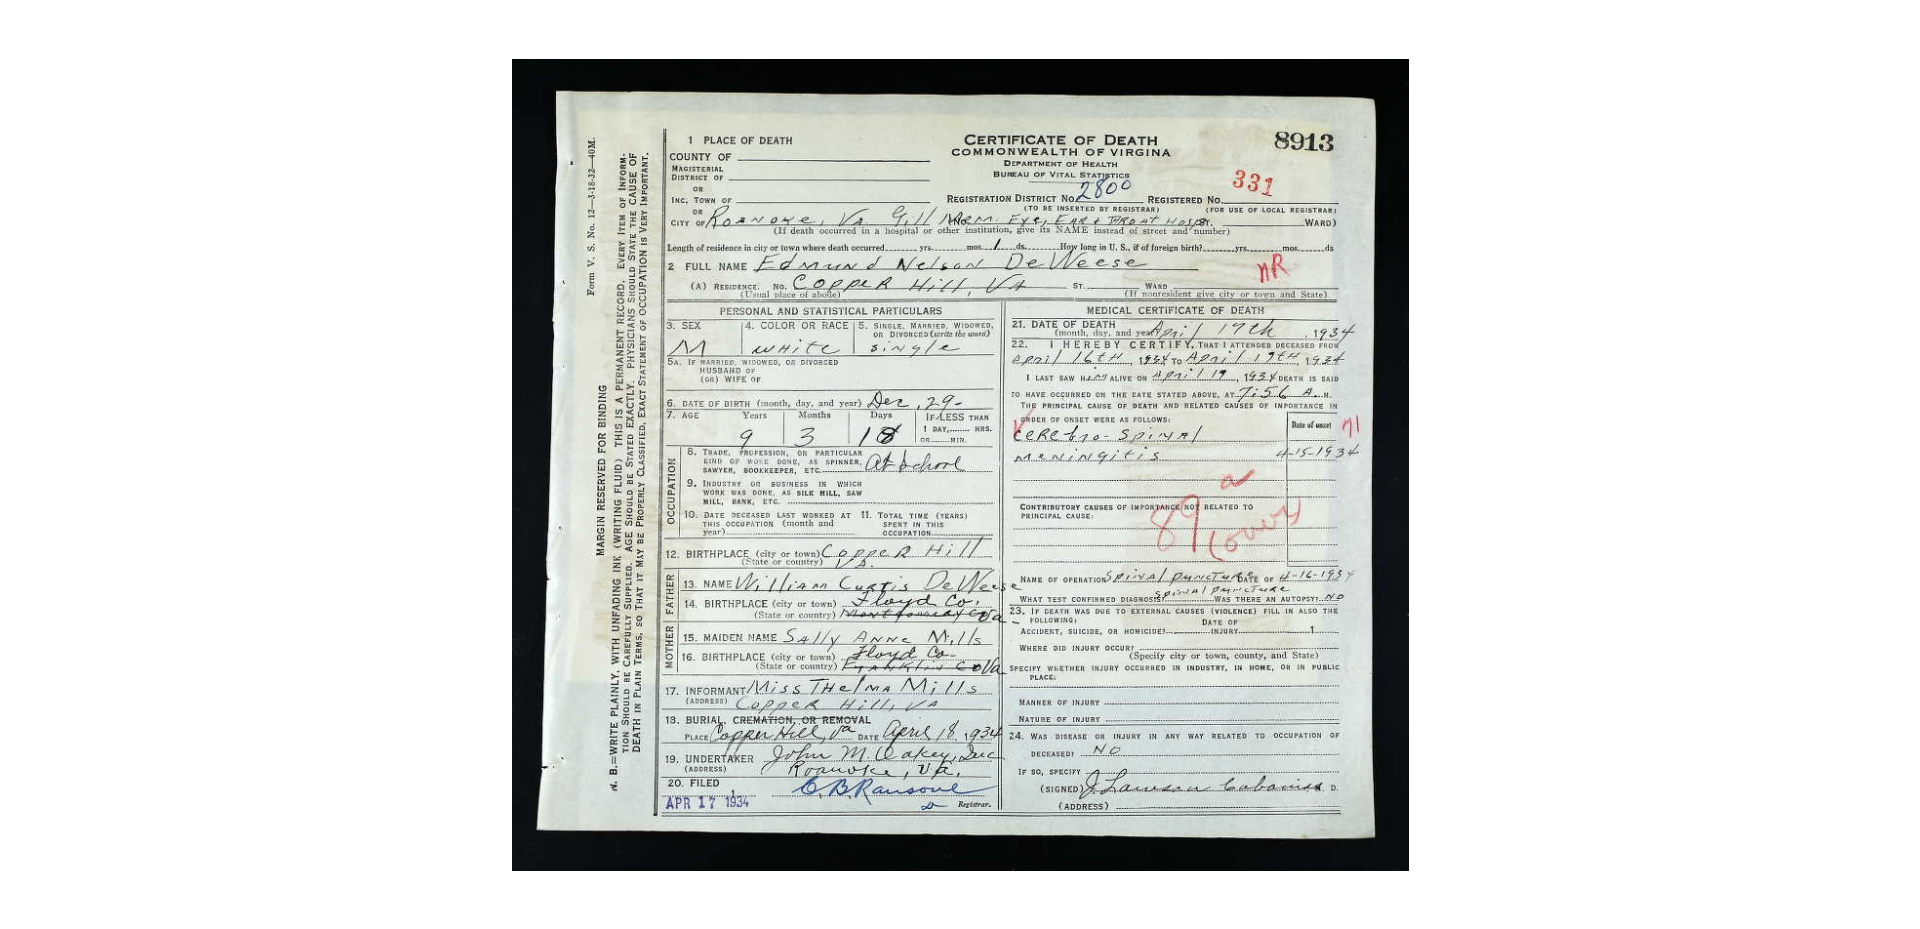 8913
1 PLACE OF DEATH
COUNTY OF
MAGISTERIAL
DISTRICT OF
OR
INC. TOWN OF
OR
CITY OF Roanoke, Va Gill Mem. Eye, Ear & Throat Hosp ST. WARD)
(If death occurred in a hospital or other institution, give its NAME instead of street and number)
CERTIFICATE OF DEATH
COMMONWEALTH OF VIRGINA
DEPARTMENT OF HEALTH
BUREAU OF VITAL STATISTICS
REGISTRATION DISTRICT NO. 2800 REGISTERED NO. 331
(TO BE INSERTED BY REGISTRAR) (FOR USE OF LOCAL REGISTRAR)
Length of residence in city or town where death occurred yrs. mos. 1 ds. How long in U. S., if of foreign birth? yrs. mos. ds
2 FULL NAME Edmund Nelson DeWeese
nR
(A) RESIDENCE. No. Copper Hill, VA ST. WARD
(Usual place of abode) (If nonresident give city or town and State)
PERSONAL AND STATISTICAL PARTICULARS
3. SEX 4. COLOR OR RACE 5. SINGLE, MARRIED, WIDOWED,
OR DIVORCED (write the word)
M white single
5A. IF MARRIED, WIDOWED, OR DIVORCED
HUSBAND OF
(OR) WIFE OF
6. DATE OF BIRTH (month, day, and year) Dec. 29-
7. AGE Years Months Days IF LESS THAN
1 DAY, HRS.
OR MIN.
9 3 18
OCCUPATION
8. TRADE, PROFESSION, OR PARTICULAR
KIND OF WORK DONE, AS SPINNER,
SAWYER, BOOKKEEPER, ETC. At school
9. INDUSTRY OR BUSINESS IN WHICH
WORK WAS DONE, AS SILK MILL, SAW
MILL, BANK, ETC.
10. DATE DECEASED LAST WORKED AT 11. TOTAL TIME (YEARS)
THIS OCCUPATION (month and SPENT IN THIS
year) OCCUPATION
12. BIRTHPLACE (city or town) Copper Hill
(State or country) VA.
FATHER
13. NAME William Curtis DeWeese
14. BIRTHPLACE (city or town) Floyd Co.
(State or country) Montgomery Co Va
MOTHER
15. MAIDEN NAME Sally Anne Mills
16. BIRTHPLACE (city or town) Floyd Co-
(State or country) Franklin Co Va
17. INFORMANT Miss Thelma Mills
(ADDRESS) Copper Hill, VA
18. BURIAL, CREMATION, OR REMOVAL
PLACE Copper Hill, Va DATE April 18, 1934
19. UNDERTAKER John M Oakey, Inc
(ADDRESS) Roanoke, Va.
20. FILED
APR 17 1934 C. B. Ransone
Registrar.
MEDICAL CERTIFICATE OF DEATH
21. DATE OF DEATH
(month, day, and year) April 17th, 1934
22. I HEREBY CERTIFY, THAT I ATTENDED DECEASED FROM
April 16th, 1934 TO April 17th, 1934
I LAST SAW HIM ALIVE ON April 17, 1934 DEATH IS SAID
TO HAVE OCCURRED ON THE DATE STATED ABOVE, AT 7:56 A. M.
THE PRINCIPAL CAUSE OF DEATH AND RELATED CAUSES OF IMPORTANCE IN
ORDER OF ONSET WERE AS FOLLOWS: Date of onset
Cerebro-Spinal
Meningitis 4-15-1934
CONTRIBUTORY CAUSES OF IMPORTANCE NOT RELATED TO
PRINCIPAL CAUSE:
NAME OF OPERATION Spinal puncture DATE OF 4-16-1934
WHAT TEST CONFIRMED DIAGNOSIS? Spinal puncture WAS THERE AN AUTOPSY? No
23. IF DEATH WAS DUE TO EXTERNAL CAUSES (VIOLENCE) FILL IN ALSO THE
FOLLOWING: DATE OF
ACCIDENT, SUICIDE, OR HOMICIDE? INJURY 1
WHERE DID INJURY OCCUR?
(Specify city or town, county, and State)
SPECIFY WHETHER INJURY OCCURRED IN INDUSTRY, IN HOME, OR IN PUBLIC
PLACE:
MANNER OF INJURY
NATURE OF INJURY
24. WAS DISEASE OR INJURY IN ANY WAY RELATED TO OCCUPATION OF
DECEASED? No
IF SO, SPECIFY
(SIGNED) J. Lawson Cabaniss D.
(ADDRESS)
Form V. S. No. 12—3-18-32—40M.
MARGIN RESERVED FOR BINDING
N. B.—WRITE PLAINLY, WITH UNFADING INK (WRITING FLUID) THIS IS A PERMANENT RECORD. EVERY ITEM OF INFORM-
TION SHOULD BE CAREFULLY SUPPLIED. AGE SHOULD BE STATED EXACTLY. PHYSICIANS SHOULD STATE THE CAUSE OF
DEATH IN PLAIN TERMS, SO THAT IT MAY BE PROPERLY CLASSIFIED. EXACT STATEMENT OF OCCUPATION IS VERY IMPORTANT.